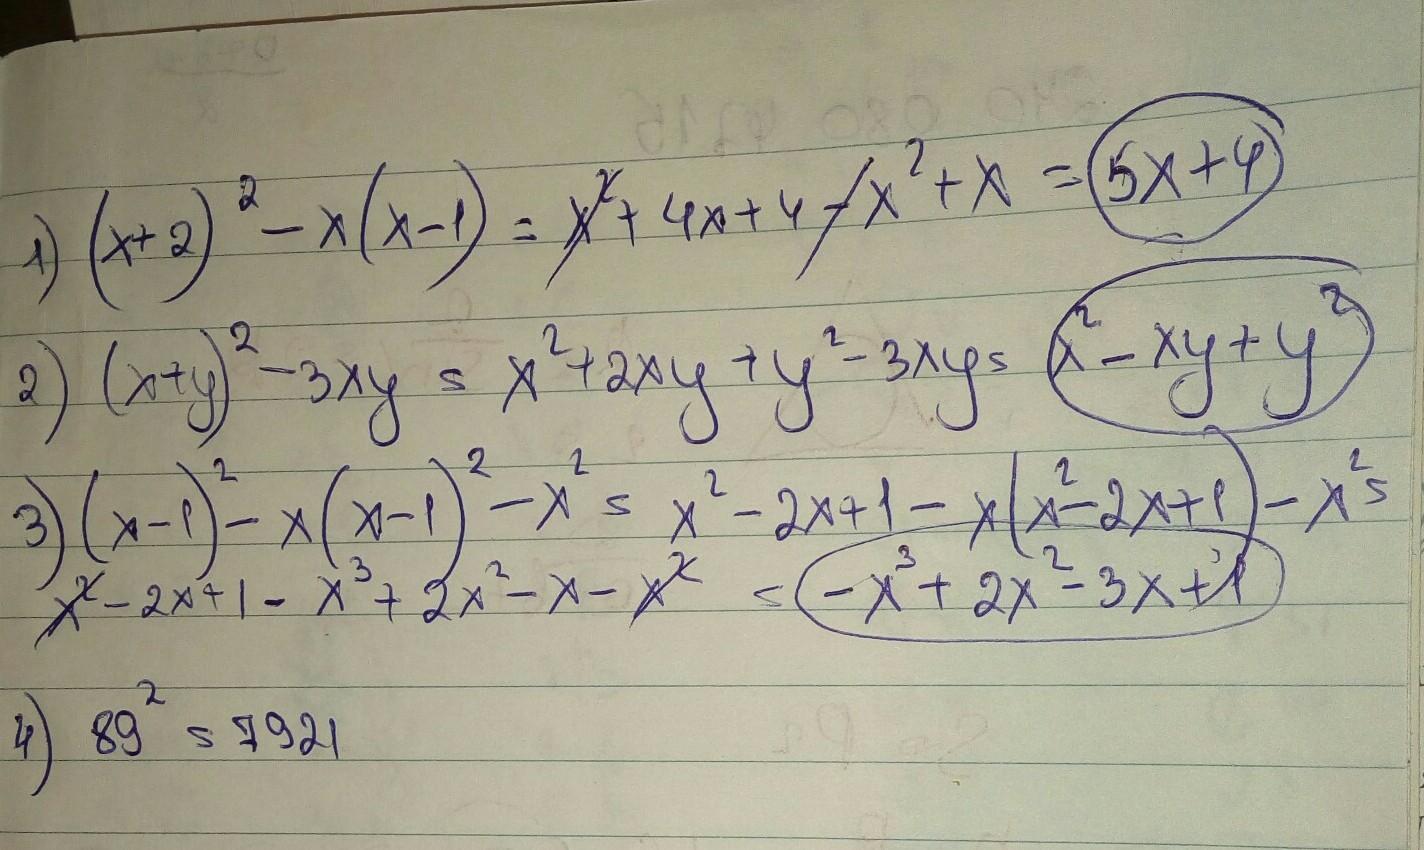 1) (x+2)² - x(x-1) = x² + 4x + 4 - x² + x = 5x+4
2) (x+y)² - 3xy = x² + 2xy + y² - 3xy = x² - xy + y²
3) (x-1)² - x(x-1)² - x² = x² - 2x + 1 - x(x² - 2x + 1) - x² =
x² - 2x + 1 - x³ + 2x² - x - x² = -x³ + 2x² - 3x + 1
4) 89² = 7921